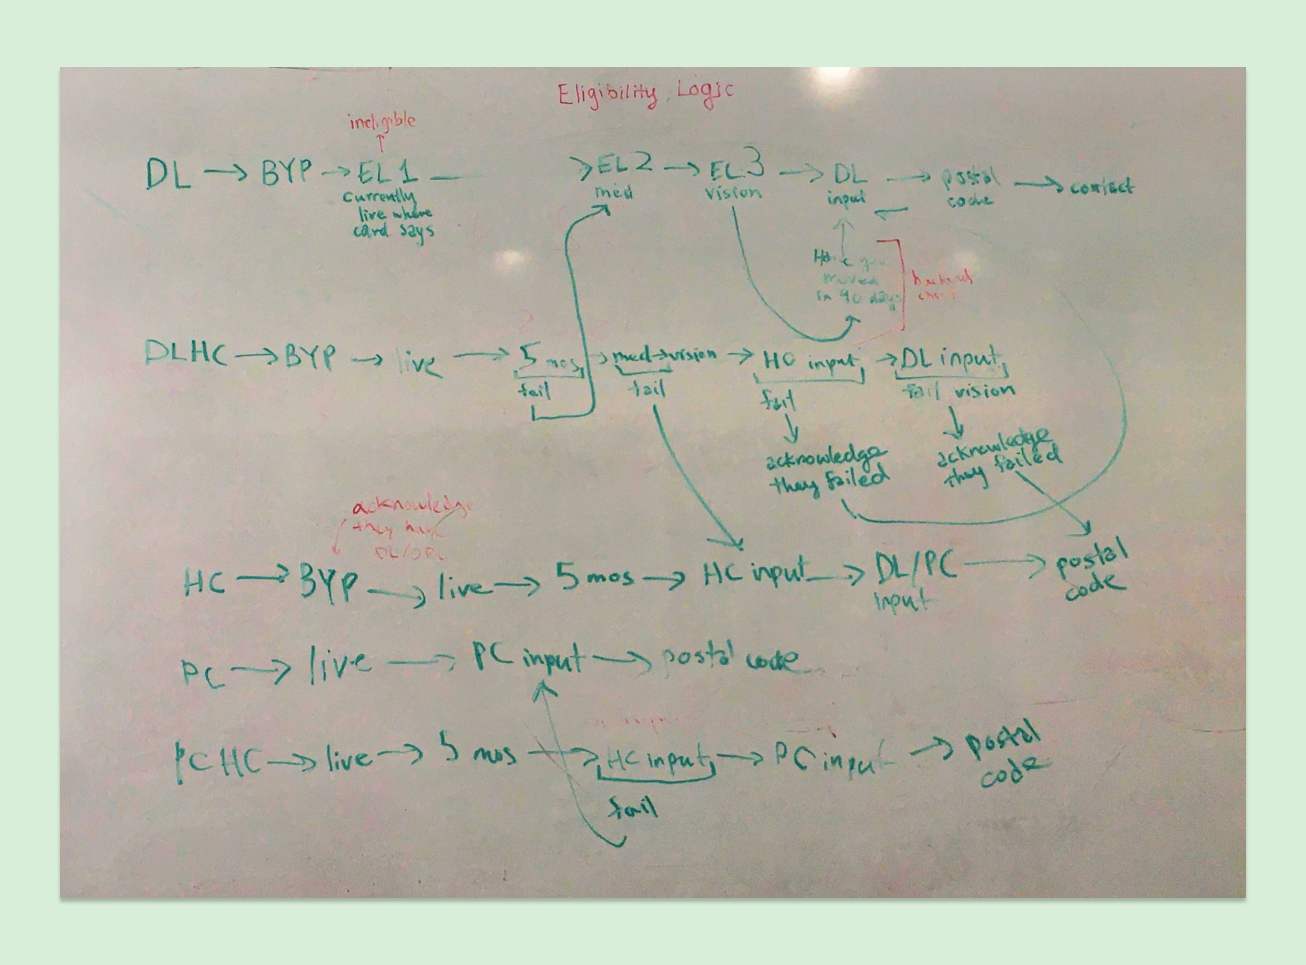 Eligibility Logic
ineligible
DL → BYP → EL 1 → EL 2 → EL 3 → DL → postal → contact
currently med vision input code
live where
card says
Have you
moved
in 90 days
backend
DLHC → BYP → live → 5 mos → med → vision → HC input → DL input
fail fail fail fail vision
acknowledge acknowledge
they failed they failed
acknowledge
they have
HC → BYP → live → 5 mos → HC input → DL/PC → postal
input code
PC → live → PC input → postal code
PCHC → live → 5 mos → HC input → PC input → postal
code
fail